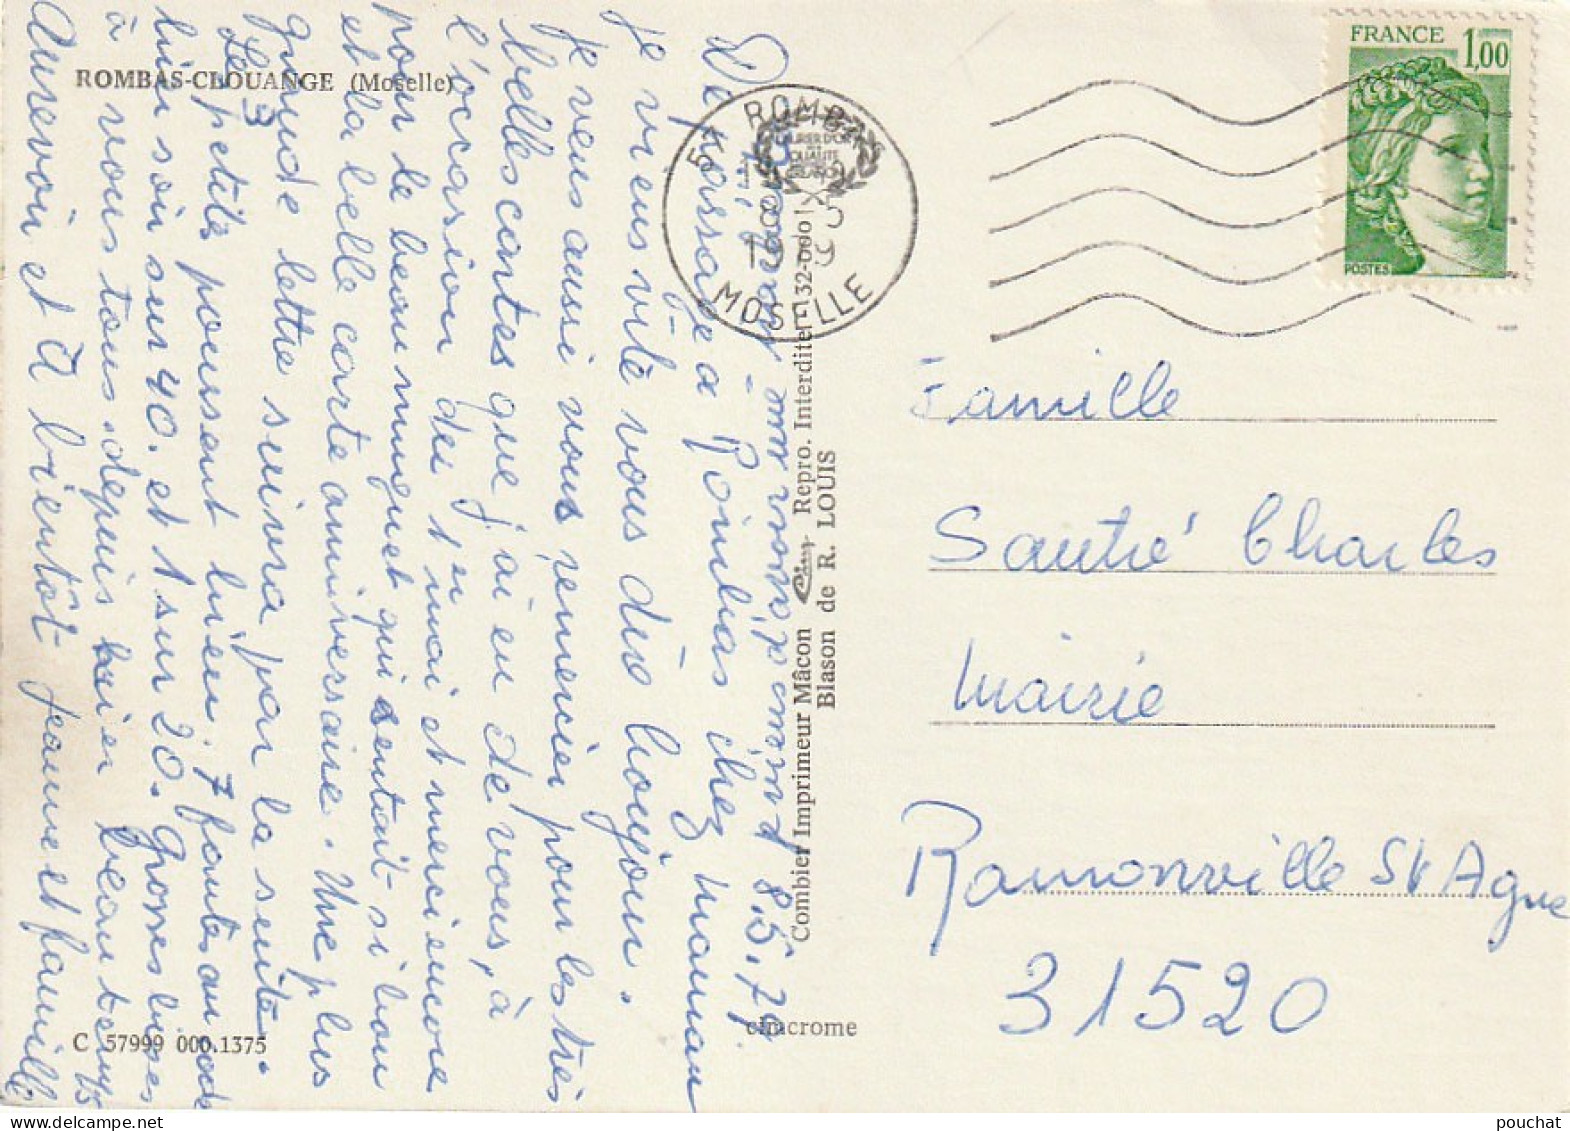 ROMBAS-CLOUANGE (Moselle)
8.5.79
De passage à Rombas chez maman
je viens vite vous dès bonjour.
je veus aussi vous remercier pour les très
belles cartes que j'ai eu de vous, à
l'occasion du 1er mai et merci encore
pour le beau muguet qui sentait si bon
et la belle carte anniversaire. Une plus
grande lettre suivra par la suite.
Les 3
petits poussent bien, 7 fontes au code
bien sûr sur 40. et 1 sur 20. Grosses bises
à vous tous. depuis hier beau temps
Aurevoir et à bientôt Jeanne et famille
Combier Imprimeur Mâcon Cim Repro. Interdite 32-000
Blason de R. LOUIS
C 57999 000.1375
cimcrome
57 ROMBAS
8 5
1979
MOSELLE
FRANCE 1,00
POSTES
Famille
Sautié Charles
Mairie
Ramonville St Agne
31520
pouchat